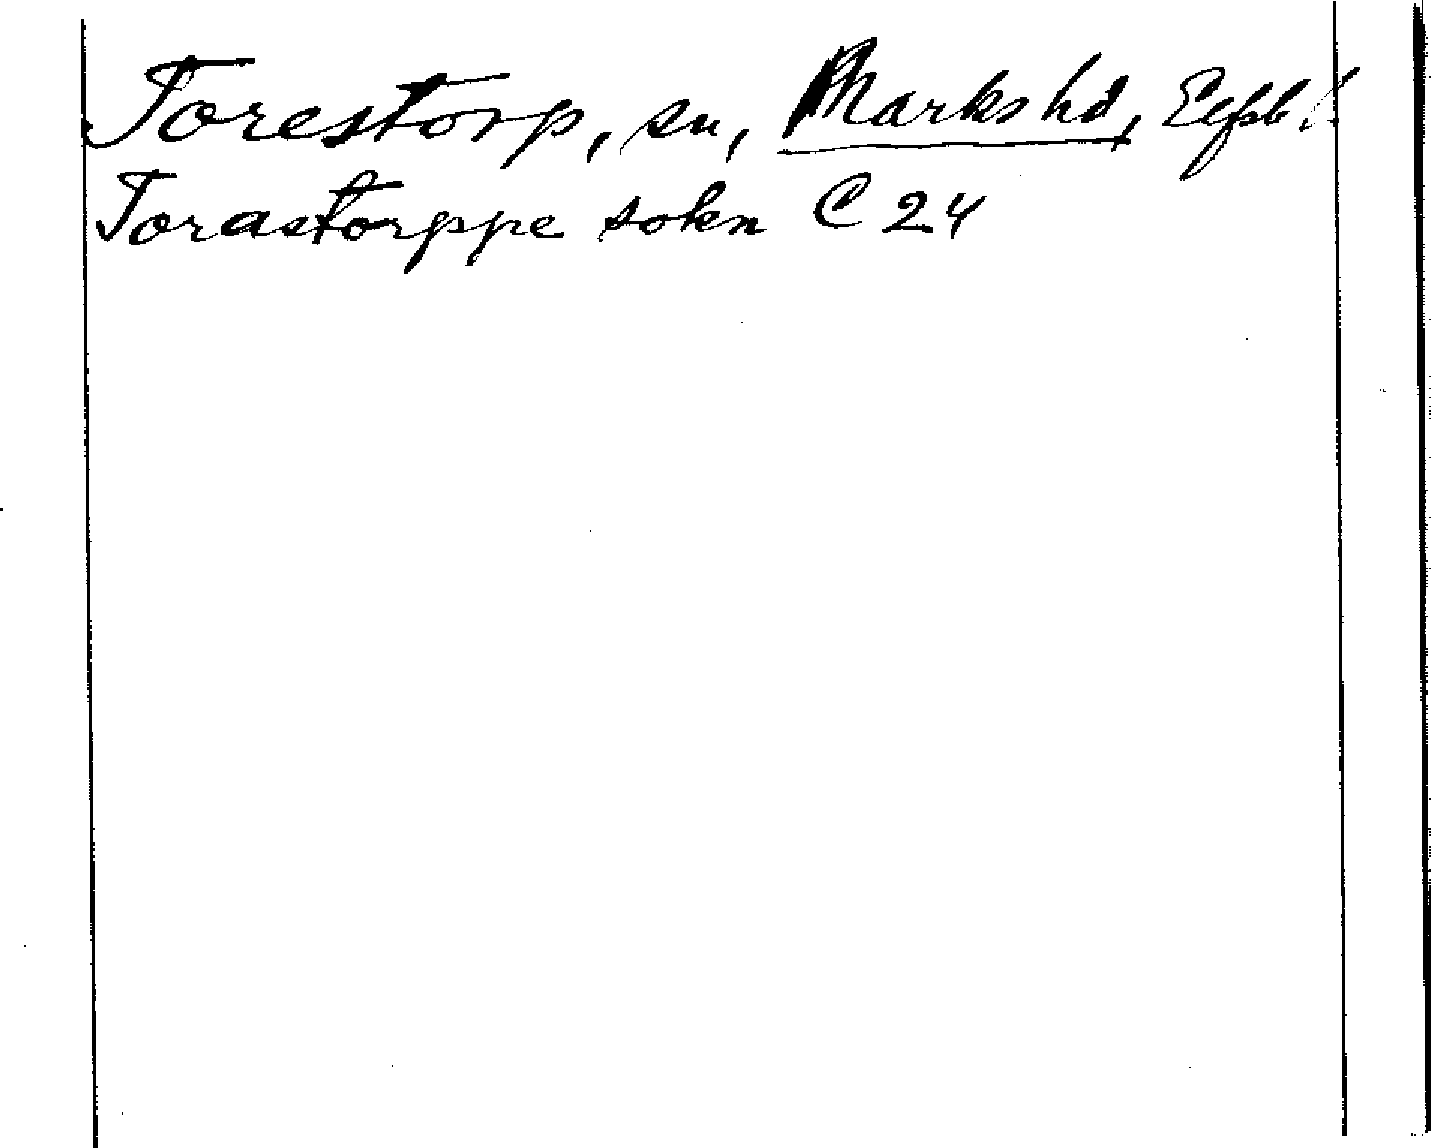 Torestorp, sn, Marks hd, Elfsb. l.
Torastorppe sokn C 24